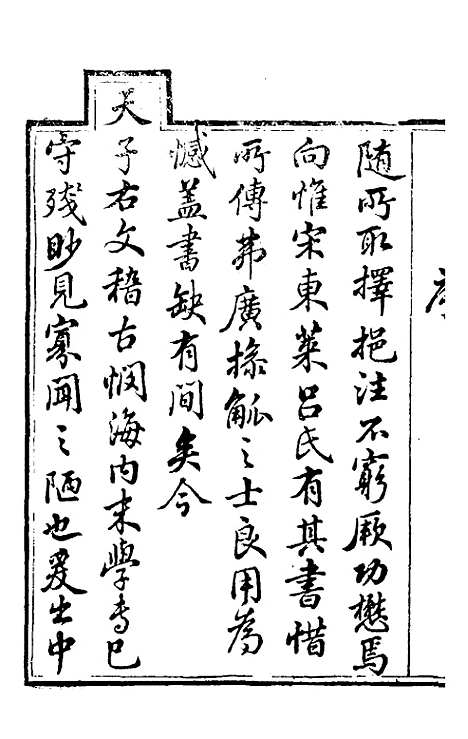 随所取擇挹注不窮厥功懋焉
向惟宋東萊呂氏有其書惜
所傳弗廣操觚之士良用為
憾盖書缺有間矣今
天子右文稽古憫海内末學專己
守殘眇見寡聞之陋也爰出中